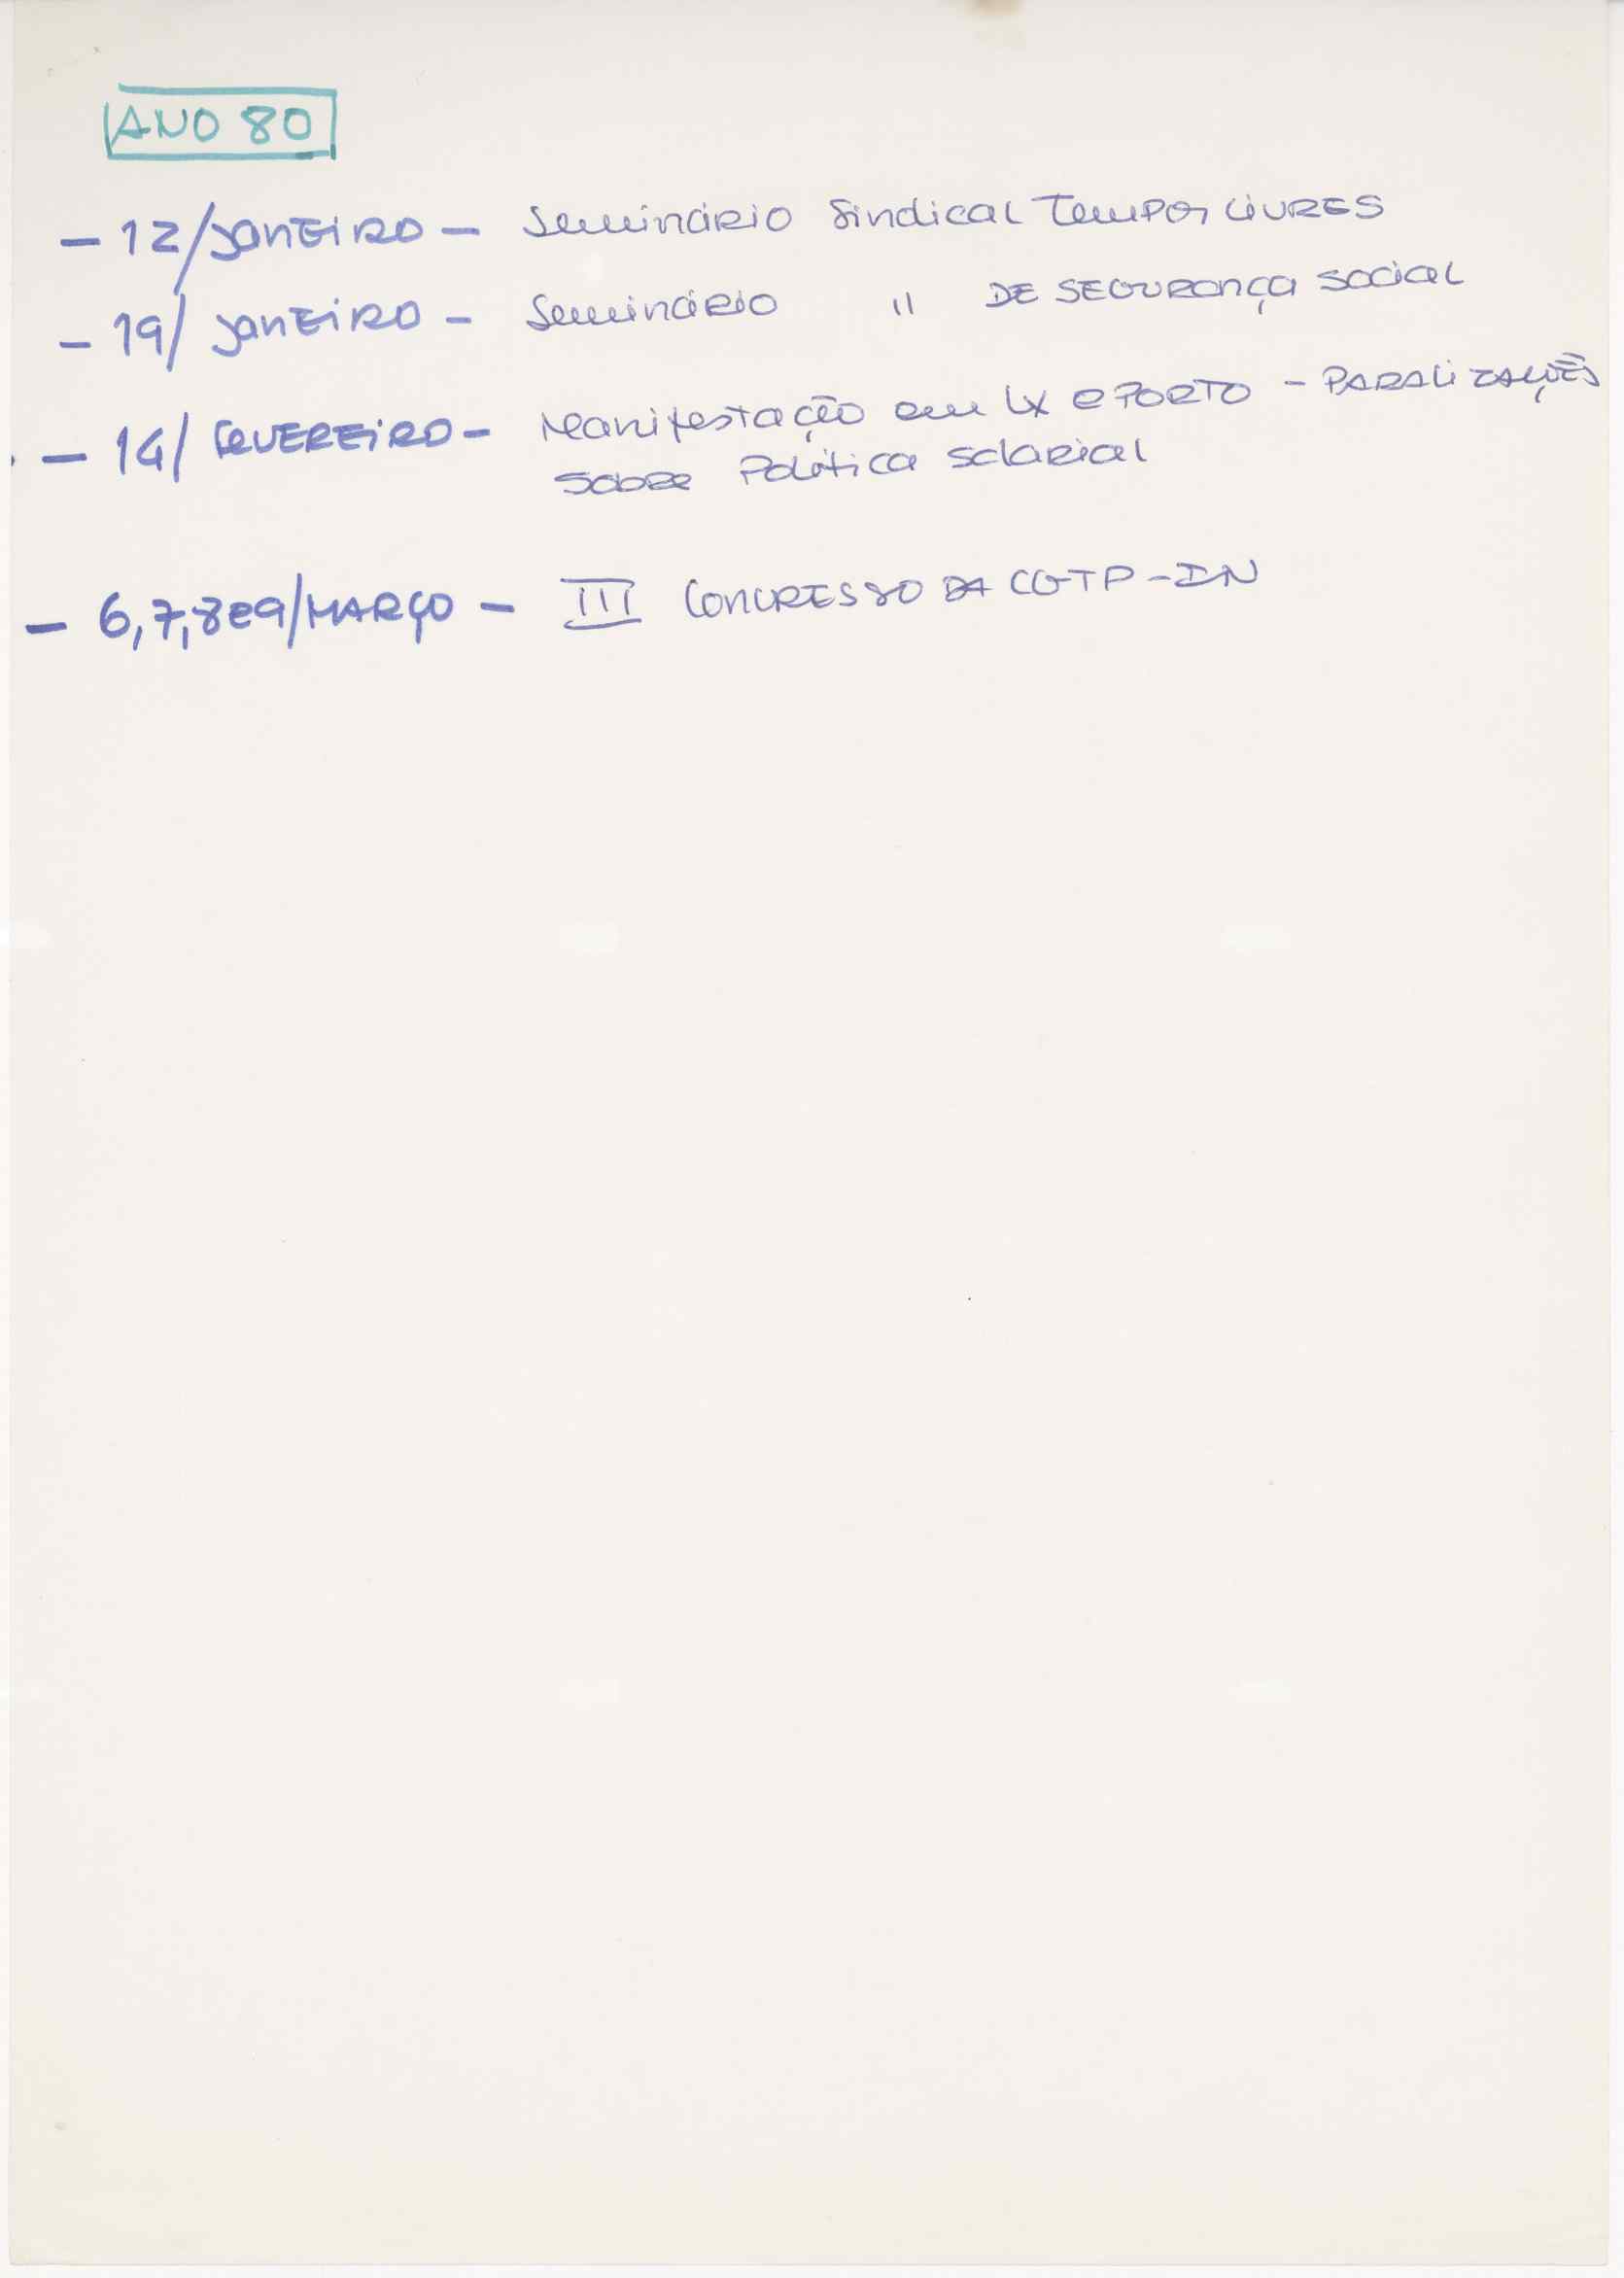 ANO 80
- 12/JANEIRO - Seminário Sindical Tempos Livres
- 19/ JANEIRO - Seminário " DE SEGURANÇA SOCIAL
- 14/ FEVEREIRO - Manifestação em Lx e PORTO - PARALIZAÇÕES
sobre Política salarial
- 6,7,8 e 9/MARÇO - III CONGRESSO DA CGTP-IN